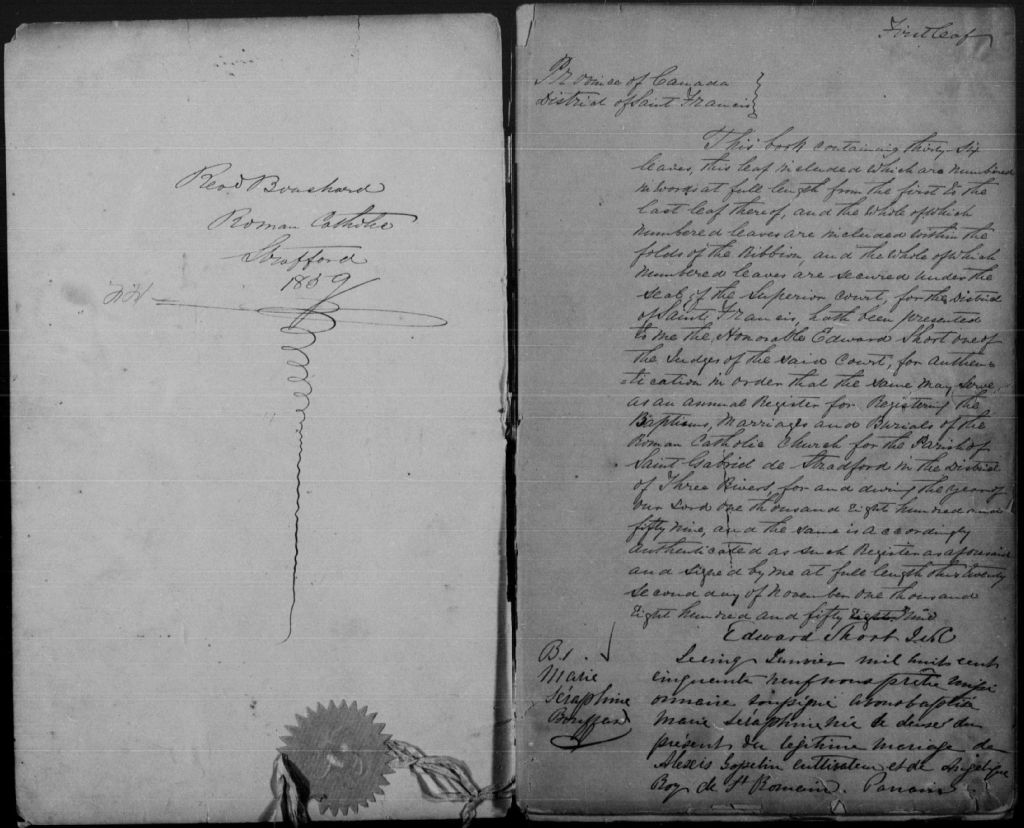 Revd Bouchard
Roman Catholic
Strafford
1859
First leaf
Province of Canada
District of Saint Francis
This book containing thirty six
leaves, this leaf included which are numbered
in words at full length from the first to the
last leaf thereof, and the whole of which
numbered leaves are included within the
folds of the Ribbon, and the whole of which
numbered leaves are secured under the
seal of the Superior Court, for the District
of Saint Francis, hath been presented
to me the Honorable Edward Short one of
the Judges of the said Court, for authen
tication in order that the same may serve,
as an annual Register for Registering the
Baptisms, Marriages and Burials of the
Roman Catholic Church for the Parish of
Saint Gabriel de Stradford in the District
of Three Rivers, for and during the year of
our Lord one thousand Eight hundred and
fifty nine, and the same is accordingly
authenticated as such Register as aforesaid
and signed by me at full length this twenty
second day of November one thousand
Eight hundred and fifty Eight
Edward Short
B1.
Marie
Séraphine
Le cinq Janvier mil huit cent
cinquante neuf nous prêtre missi
onnaire soussigné avons baptisé
Marie Séraphine née le
présent du légitime mariage de
Alexis cultivateur et de Angélique
Roy de St Romain. Parrain